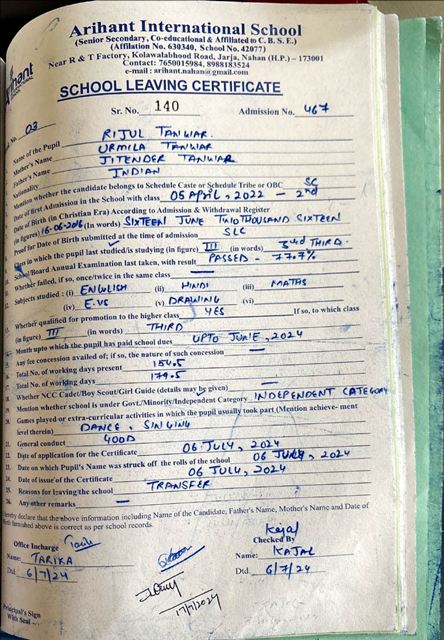 Arihant International School
(Senior Secondary, Co-educational & Affiliated to C. B. S. E.)
(Affilation No. 630340, School No. 42077)
Near R & T Factory, Kolawalabhood Road, Jarja, Nahan (H.P.) – 173001
Contact: 7650015984, 8988183524
e-mail : arihant.nahan@gmail.com
Arihant
SCHOOL LEAVING CERTIFICATE
Sr. No. 140 Admission No. 467
No. 03
Name of the Pupil RIJUL TANWAR.
Mother's Name URMILA TANWAR
Father's Name JITENDER TANWAR
Nationality INDIAN
Mention whether the candidate belongs to Schedule Caste or Schedule Tribe or OBC SC
Date of first Admission in the School with class 05 April, 2022 – 2nd
Date of Birth (in Christian Era) According to Admission & Withdrawal Register
(in figures) 16-06-2016 (In words) SIXTEEN JUNE TWOTHOUSAND SIXTEEN
Proof for Date of Birth submitted at the time of admission SLC
in which the pupil last studied/is studying (in figure) III (in words) 3rd THIRD.
School/Board Annual Examination last taken, with result PASSED – 77.7%
Whether failed, if so, once/twice in the same class —
Subjects studied : (i) ENGLISH (ii) HINDI (iii) MATHS
(iv) E.VS (v) DRAWING (vi)
Whether qualified for promotion to the higher class YES If so, to which class
(in figure) III (in words) THIRD
Month upto which the pupil has paid school dues UPTO JUNE, 2024
Any fee concession availed of; if so, the nature of such concession —
Total No. of working days present 154.5
Total No. of working days 179.5
Whether NCC Cadet/Boy Scout/Girl Guide (details may be given) —
Mention whether school is under Govt./Minority/Independent Category INDEPENDENT CATEGORY
Games played or extra-curricular activities in which the pupil usually took part (Mention achieve- ment
level therein) DANCE, SINGING
21. General conduct GOOD
22. Date of application for the Certificate 06 JULY, 2024
23. Date on which Pupil's Name was struck off the rolls of the school 06 JULY, 2024
24. Date of issue of the Certificate 06 JULY, 2024
25. Reasons for leaving/the school TRANSFER
26. Any other remarks —
hereby declare that the above information including Name of the Candidate, Father's Name, Mother's Name and Date of
Birth furnished above is correct as per school records.
Office Incharge Kajal
Checked By
Name: TARIKA Name: KAJAL
Dtd. 6/7/24 Dtd. 6/7/24
17/7/2024
Principal's Sign
With Seal